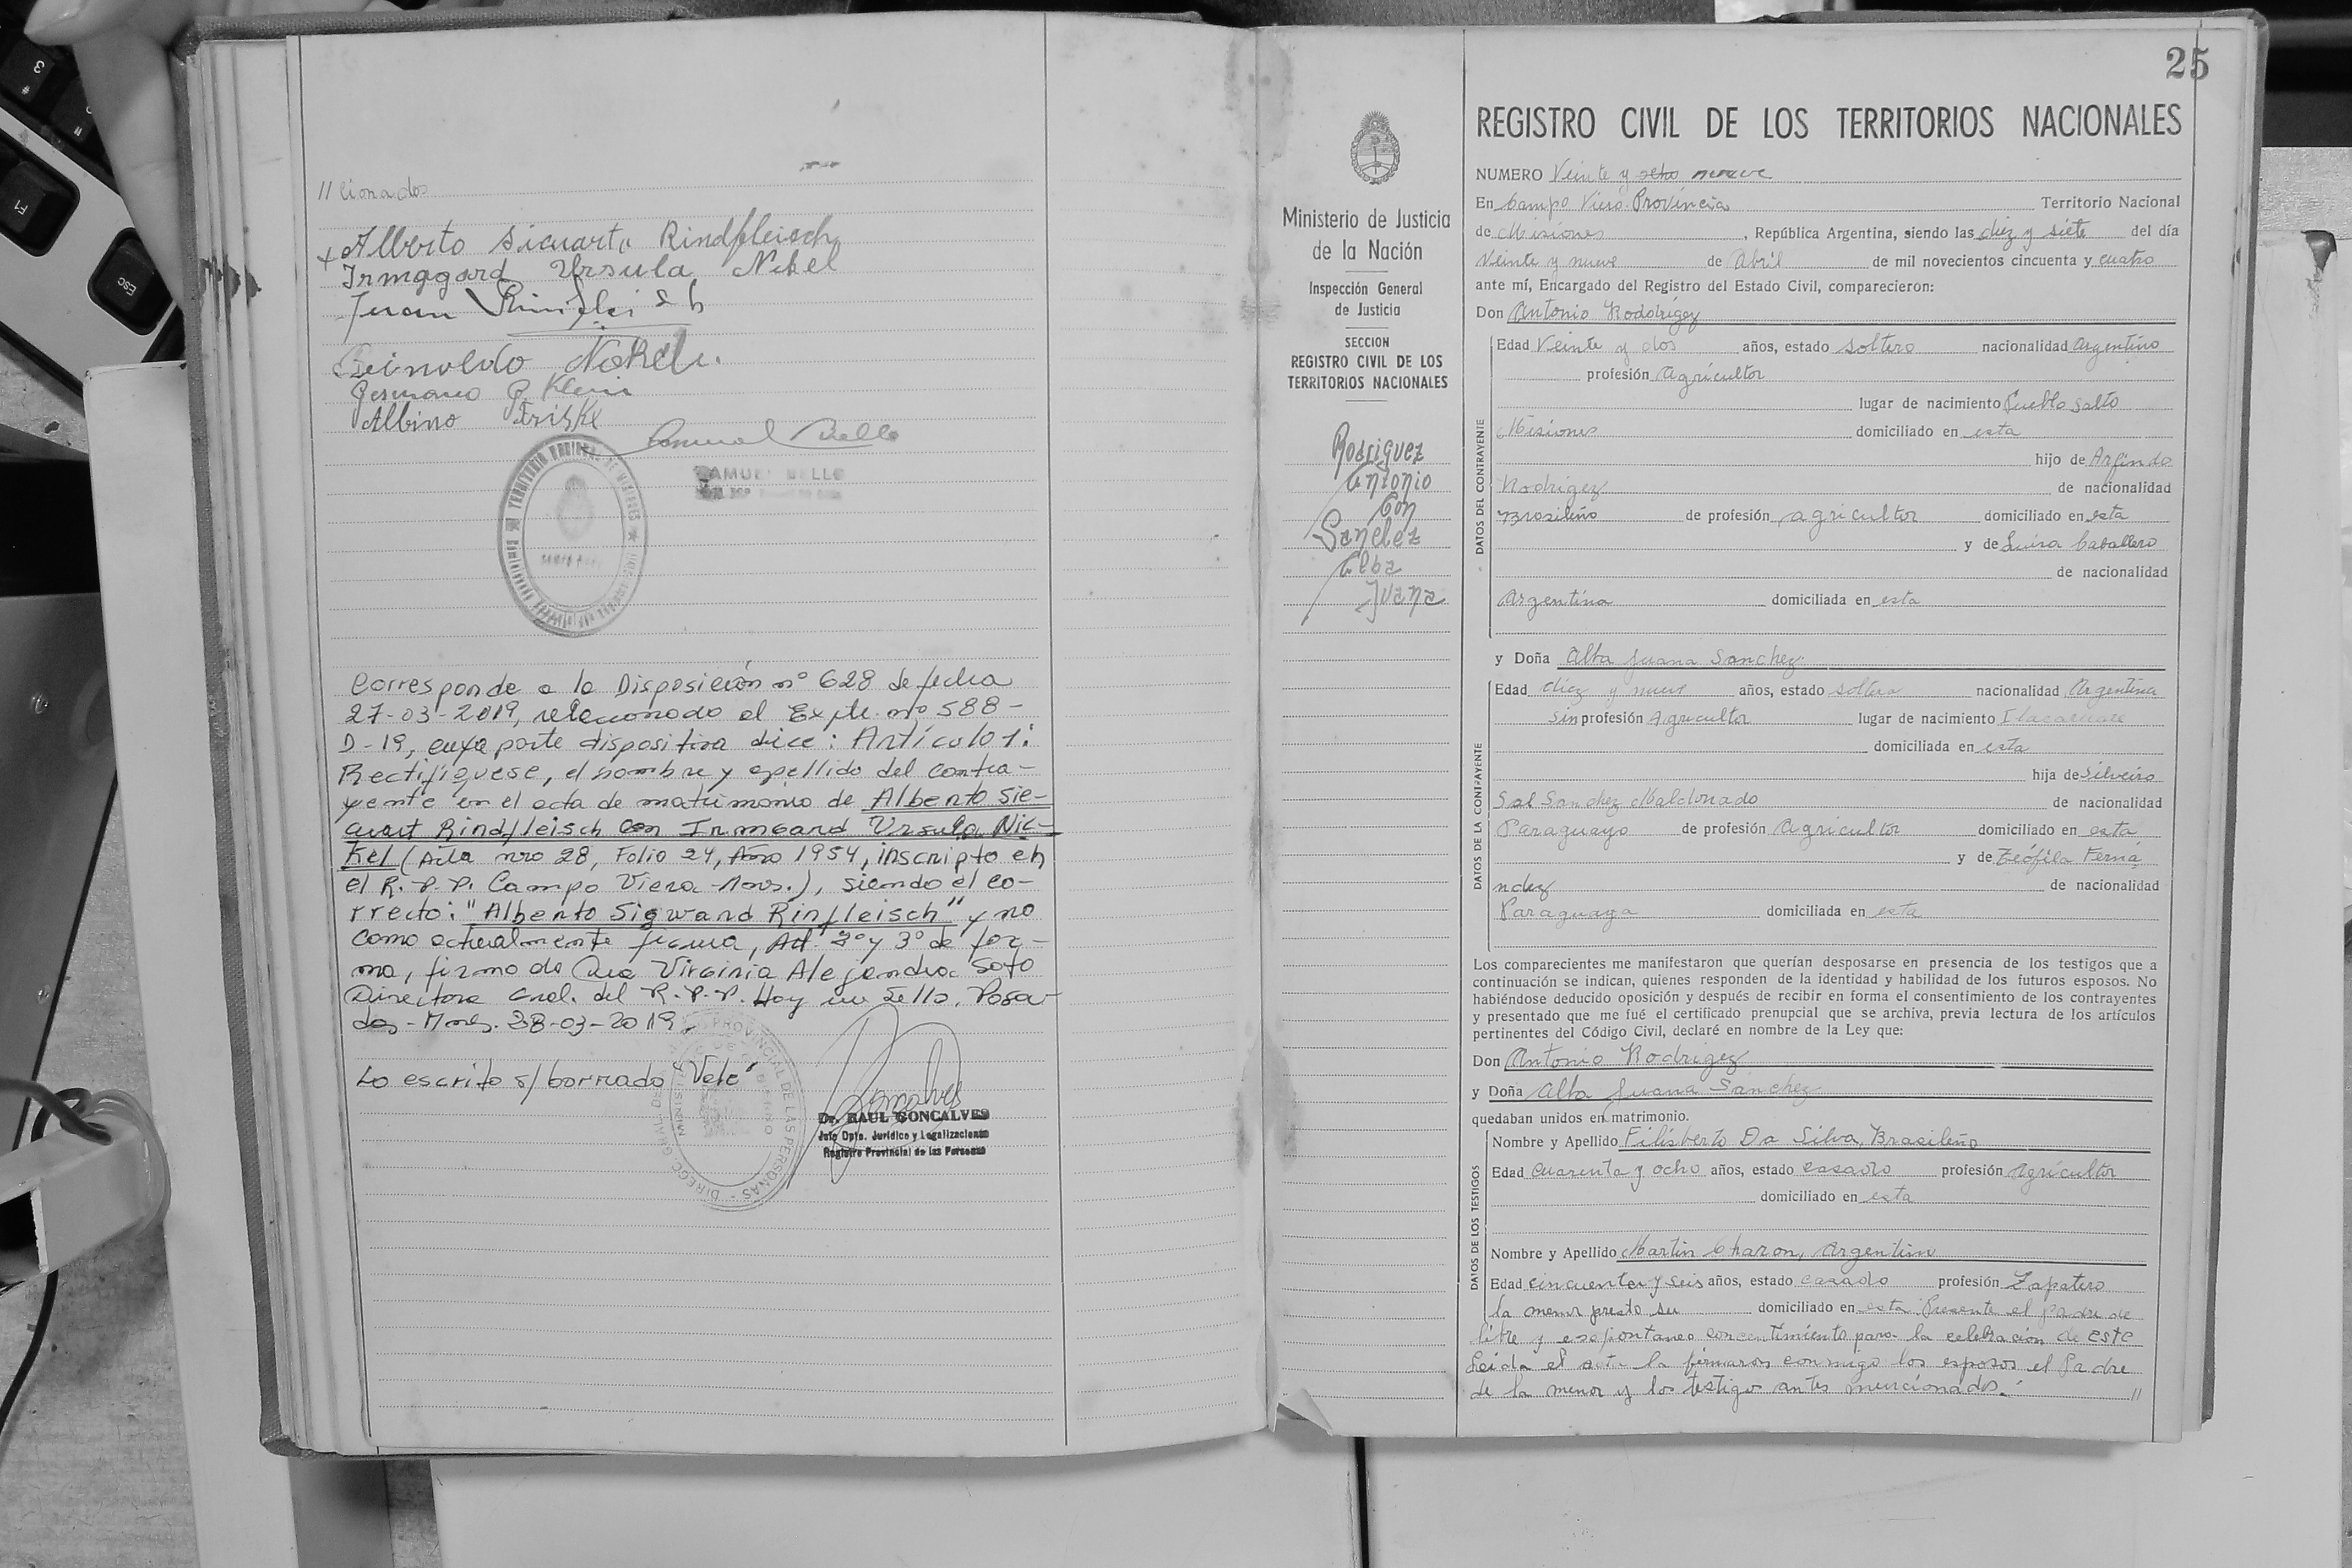 // cionados
+ Alberto Sicuarto Rindfleisch
Irmagard Ursula Nikel
Juan
Germano G. Klein
Albino Friske
Samuel Bello
SAMUEL BELLO
Corresponde a la Disposición nº 628 de fecha
27-03-2019, relacionado al Expte. nro 588-
D-19, cuya parte dispositiva dice: Artículo 1:
Rectifíquese, el nombre y apellido del contra-
yente en el acta de matrimonio de Alberto Sic-
uart Rindfleisch con Irmgard Ursula Nic-
kel (Acta nro 28, Folio 24, Año 1954, inscripto en
el R.P.P. Campo Viera - Mnes.), siendo el co-
rrecto: "Alberto Sigward Rinfleisch" y no
como actualmente figura, Art. 2º y 3º de for-
ma, firmado Dra Virginia Alejandra Soto
Directora Gral. del R.P.P. Hay un Sello. Posa-
das - Mnes. 28-03-2019.
Lo escrito s/ borrado "Vale"
Dr. RAUL GONCALVES
Jefe Dpto. Jurídico y Legalizaciones
Registro Provincial de las Personas
25
Ministerio de Justicia
de la Nación
Inspección General
de Justicia
SECCION
REGISTRO CIVIL DE LOS
TERRITORIOS NACIONALES
Rodriguez
Antonio
Con
Sanchez
Elba
Juana
REGISTRO CIVIL DE LOS TERRITORIOS NACIONALES
NUMERO Veinte y ocho nueve
En Campo Viera Provincia Territorio Nacional
de Misiones, República Argentina, siendo las diez y siete del día
veinte y nueve de Abril de mil novecientos cincuenta y cuatro
ante mí, Encargado del Registro del Estado Civil, comparecieron:
Don Antonio Roddrigez
DATOS DEL CONTRAYENTE
Edad Veinte y dos años, estado soltero nacionalidad Argentino
profesión Agricultor
lugar de nacimiento Pueblo Salto
Misiones domiciliado en esta
hijo de Arfindo
Rodrigez de nacionalidad
Brasileño de profesión agricultor domiciliado en esta
y de Luisa Caballero
de nacionalidad
Argentina domiciliada en esta
y Doña Alba Juana Sanchez
DATOS DE LA CONTRAYENTE
Edad diez y nueve años, estado soltera nacionalidad Argentina
sin profesión Agricultor lugar de nacimiento
domiciliada en esta
hija de Silveiro
Sal Sanchez Maldonado de nacionalidad
Paraguayo de profesión Agricultor domiciliado en esta
y de Teófila Ferná
ndez de nacionalidad
Paraguaya domiciliada en esta
Los comparecientes me manifestaron que querían desposarse en presencia de los testigos que a
continuación se indican, quienes responden de la identidad y habilidad de los futuros esposos. No
habiéndose deducido oposición y después de recibir en forma el consentimiento de los contrayentes
y presentado que me fué el certificado prenupcial que se archiva, previa lectura de los artículos
pertinentes del Código Civil, declaré en nombre de la Ley que:
Don Antonio Rodrigez
y Doña Alba Juana Sanchez
quedaban unidos en matrimonio.
DATOS DE LOS TESTIGOS
Nombre y Apellido Filisberto Da Silva, Brasileño
Edad cuarenta y ocho años, estado casado profesión Agricultor
domiciliado en esta
Nombre y Apellido Martin Charon, Argentino
Edad cincuenta y seis años, estado casado profesión Zapatero
la menor presto su domiciliado en esta Presente el padre de
libre y esopontaneo concentimiento para la celebracion de este
Leida el acta la firmaron conmigo los esposos el Padre
de la menor y los testigos antes mencionados. //